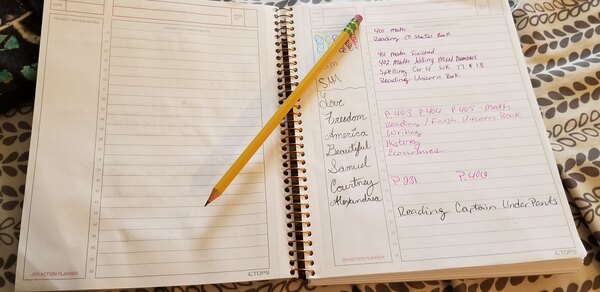 PROJECT ACTION NOTES
JEN ACTION PLANNER
TOPS
Sam
Still
Love
Freedom
America
Beautiful
Samuel
Courtney
Alexandrea
401 Math
Reading 50 States Book
401 Math Finished
402 Math Adding Mixed Numbers
Spelling Gr 4 WK 17 & 18
Reading Unicorn Book
P. 403 P. 404 P. 405 Math
Reading / Finish Unicorn Book
Writing
History
Economics
P. 231 P. 406
Reading Captain UnderPants
JEN ACTION PLANNER
TOPS